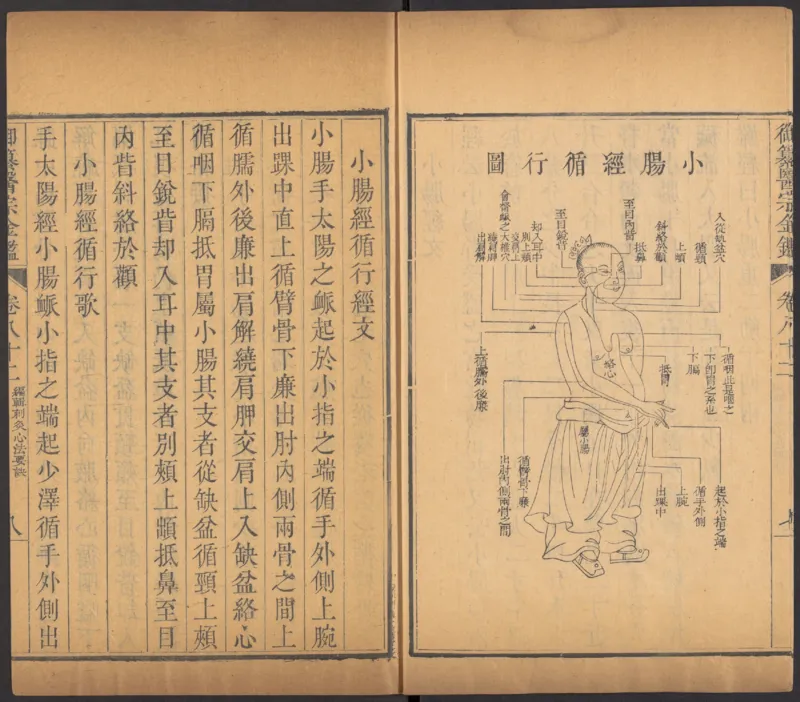 御纂醫宗金鑑
卷八十二
小腸經循行圖
入從缺盆穴
循頸
上䪼
斜絡於顴
抵鼻
至目內眥
至目銳眥
却入耳中
別上頰
交肩上
會督脈之大椎穴
繞肩胛
出肩解
循咽此是喉之
下卽胃之系也
下膈
抵胃
絡心
屬小腸
上循臑外後廉
起於小指之端
循手外側
上腕
出踝中
循臂骨下廉
出肘內側兩骨之間
小腸經循行經文
小腸手太陽之脈起於小指之端循手外側上腕
出踝中直上循臂骨下廉出肘內側兩骨之間上
循臑外後廉出肩解繞肩胛交肩上入缺盆絡心
循咽下膈抵胃屬小腸其支者從缺盆循頸上頰
至目銳眥却入耳中其支者別頰上䪼抵鼻至目
內眥斜絡於顴
小腸經循行歌
手太陽經小腸脈小指之端起少澤循手外側出
御纂醫宗金鑑
卷八十二
編輯刺灸心法要訣
八